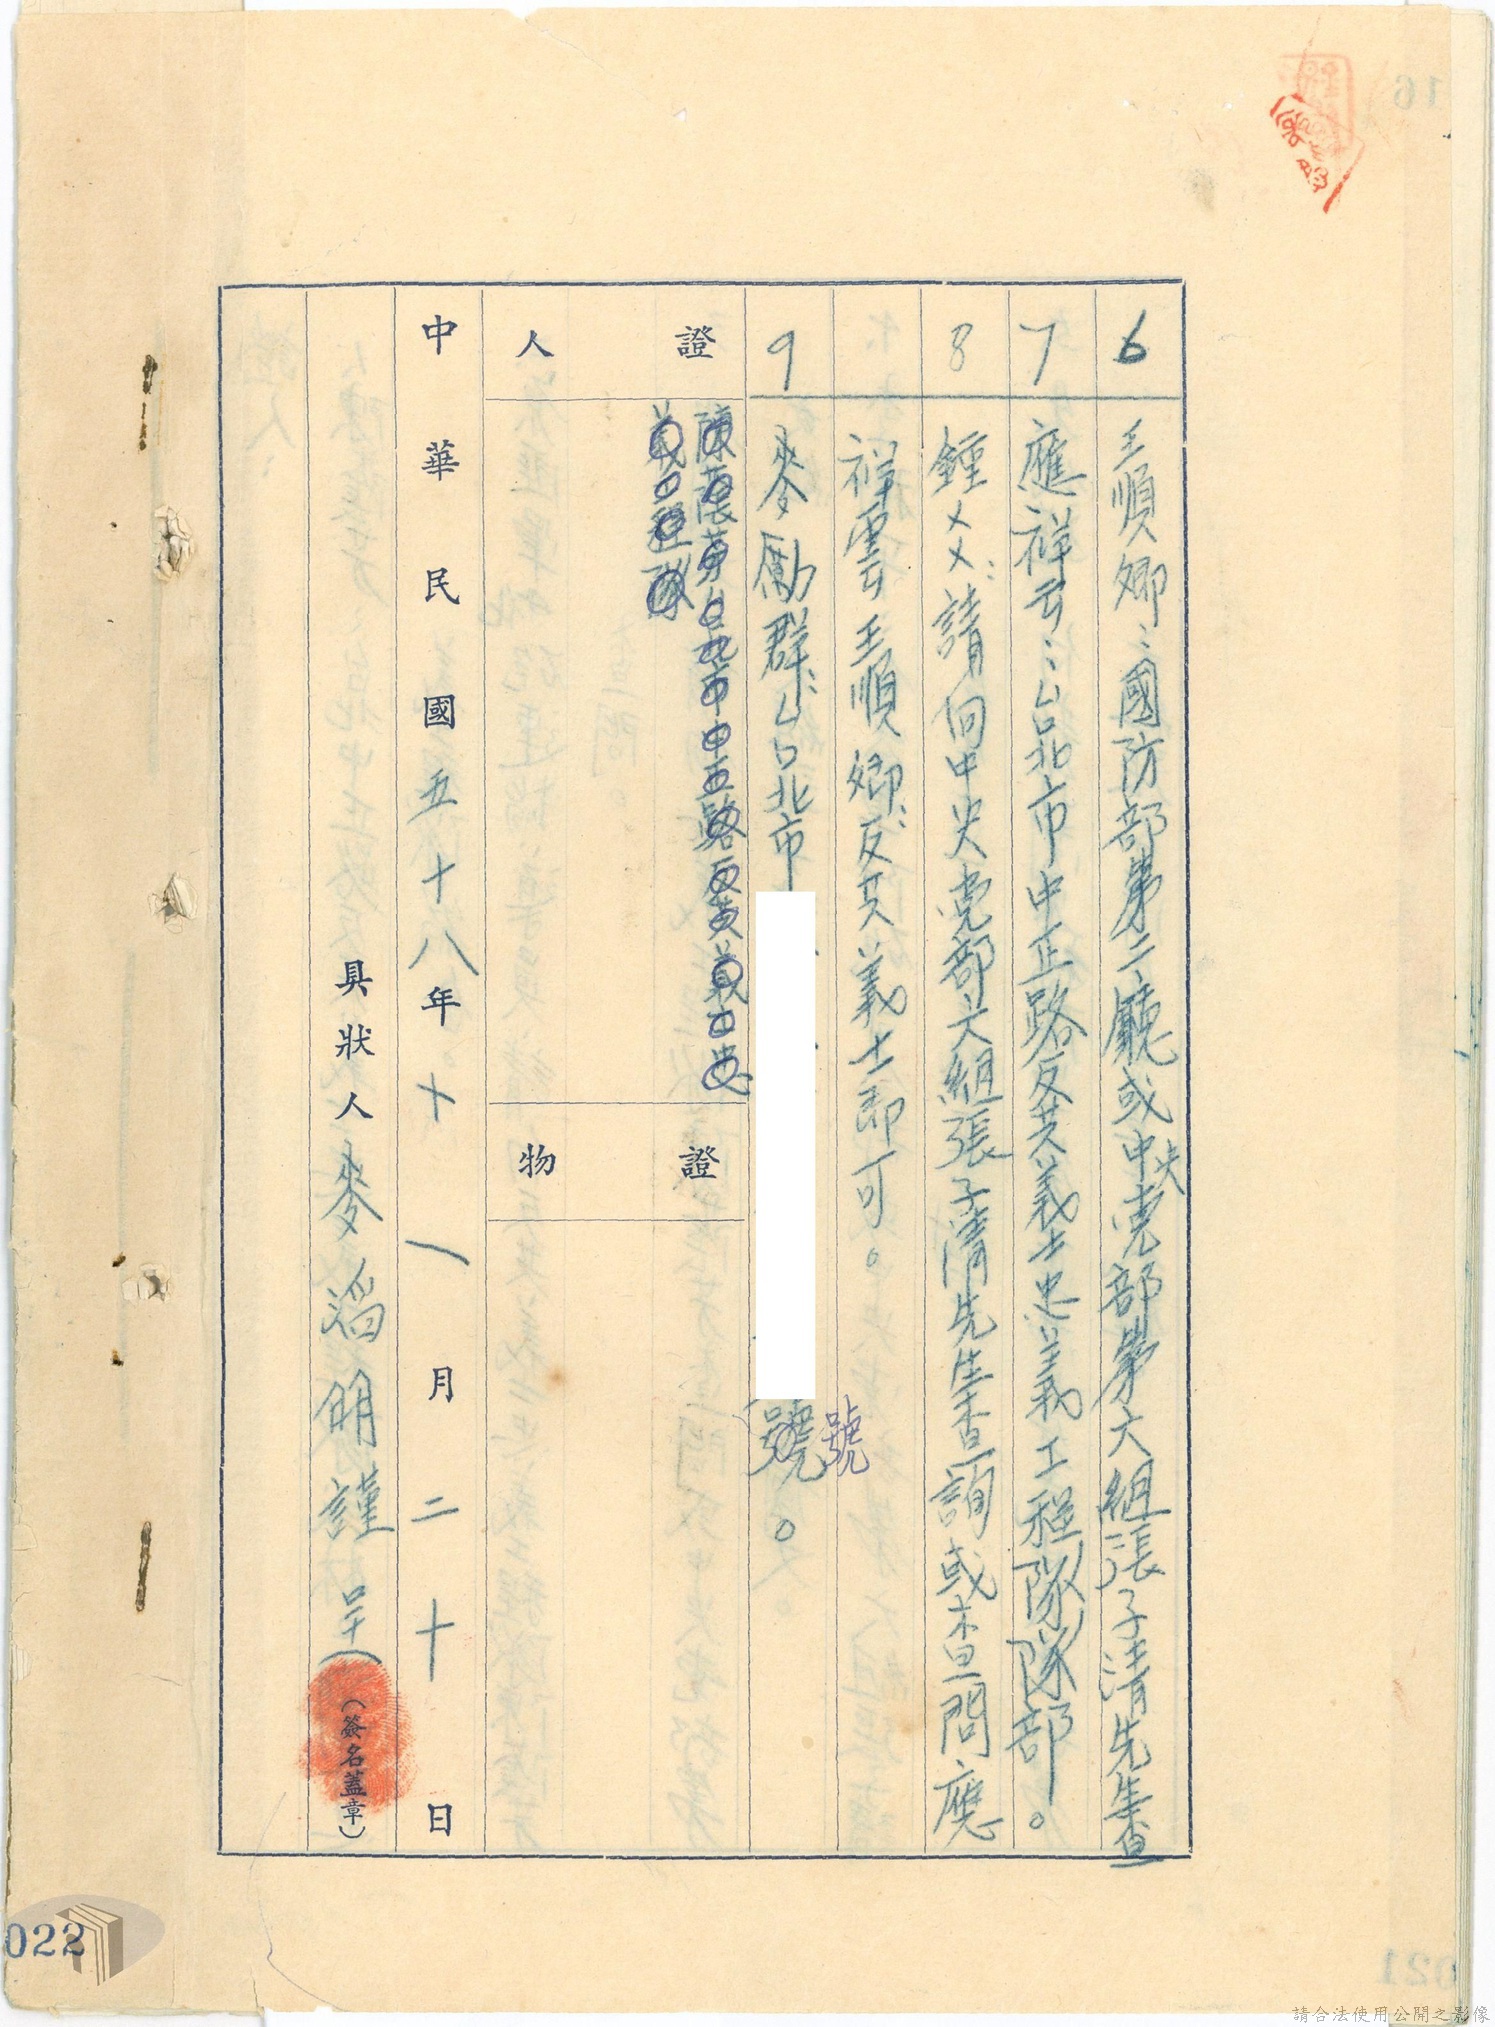 6 王順卿：國防部第二廳或中央党部第六組張子清先生查
7 應祥云：台北市中正路反共義士忠義工程隊隊部。
8 鍾㐅㐅：請向中央党部六組張子清先生查詢或查問應
祥雲王順卿：反共義士即可。
9 麥勵群：台北市
號
號。
證人
證物
中華民國五十八年十一月二十日
具狀人麥滔明謹呈
（簽名蓋章）
022
請合法使用公開之影像